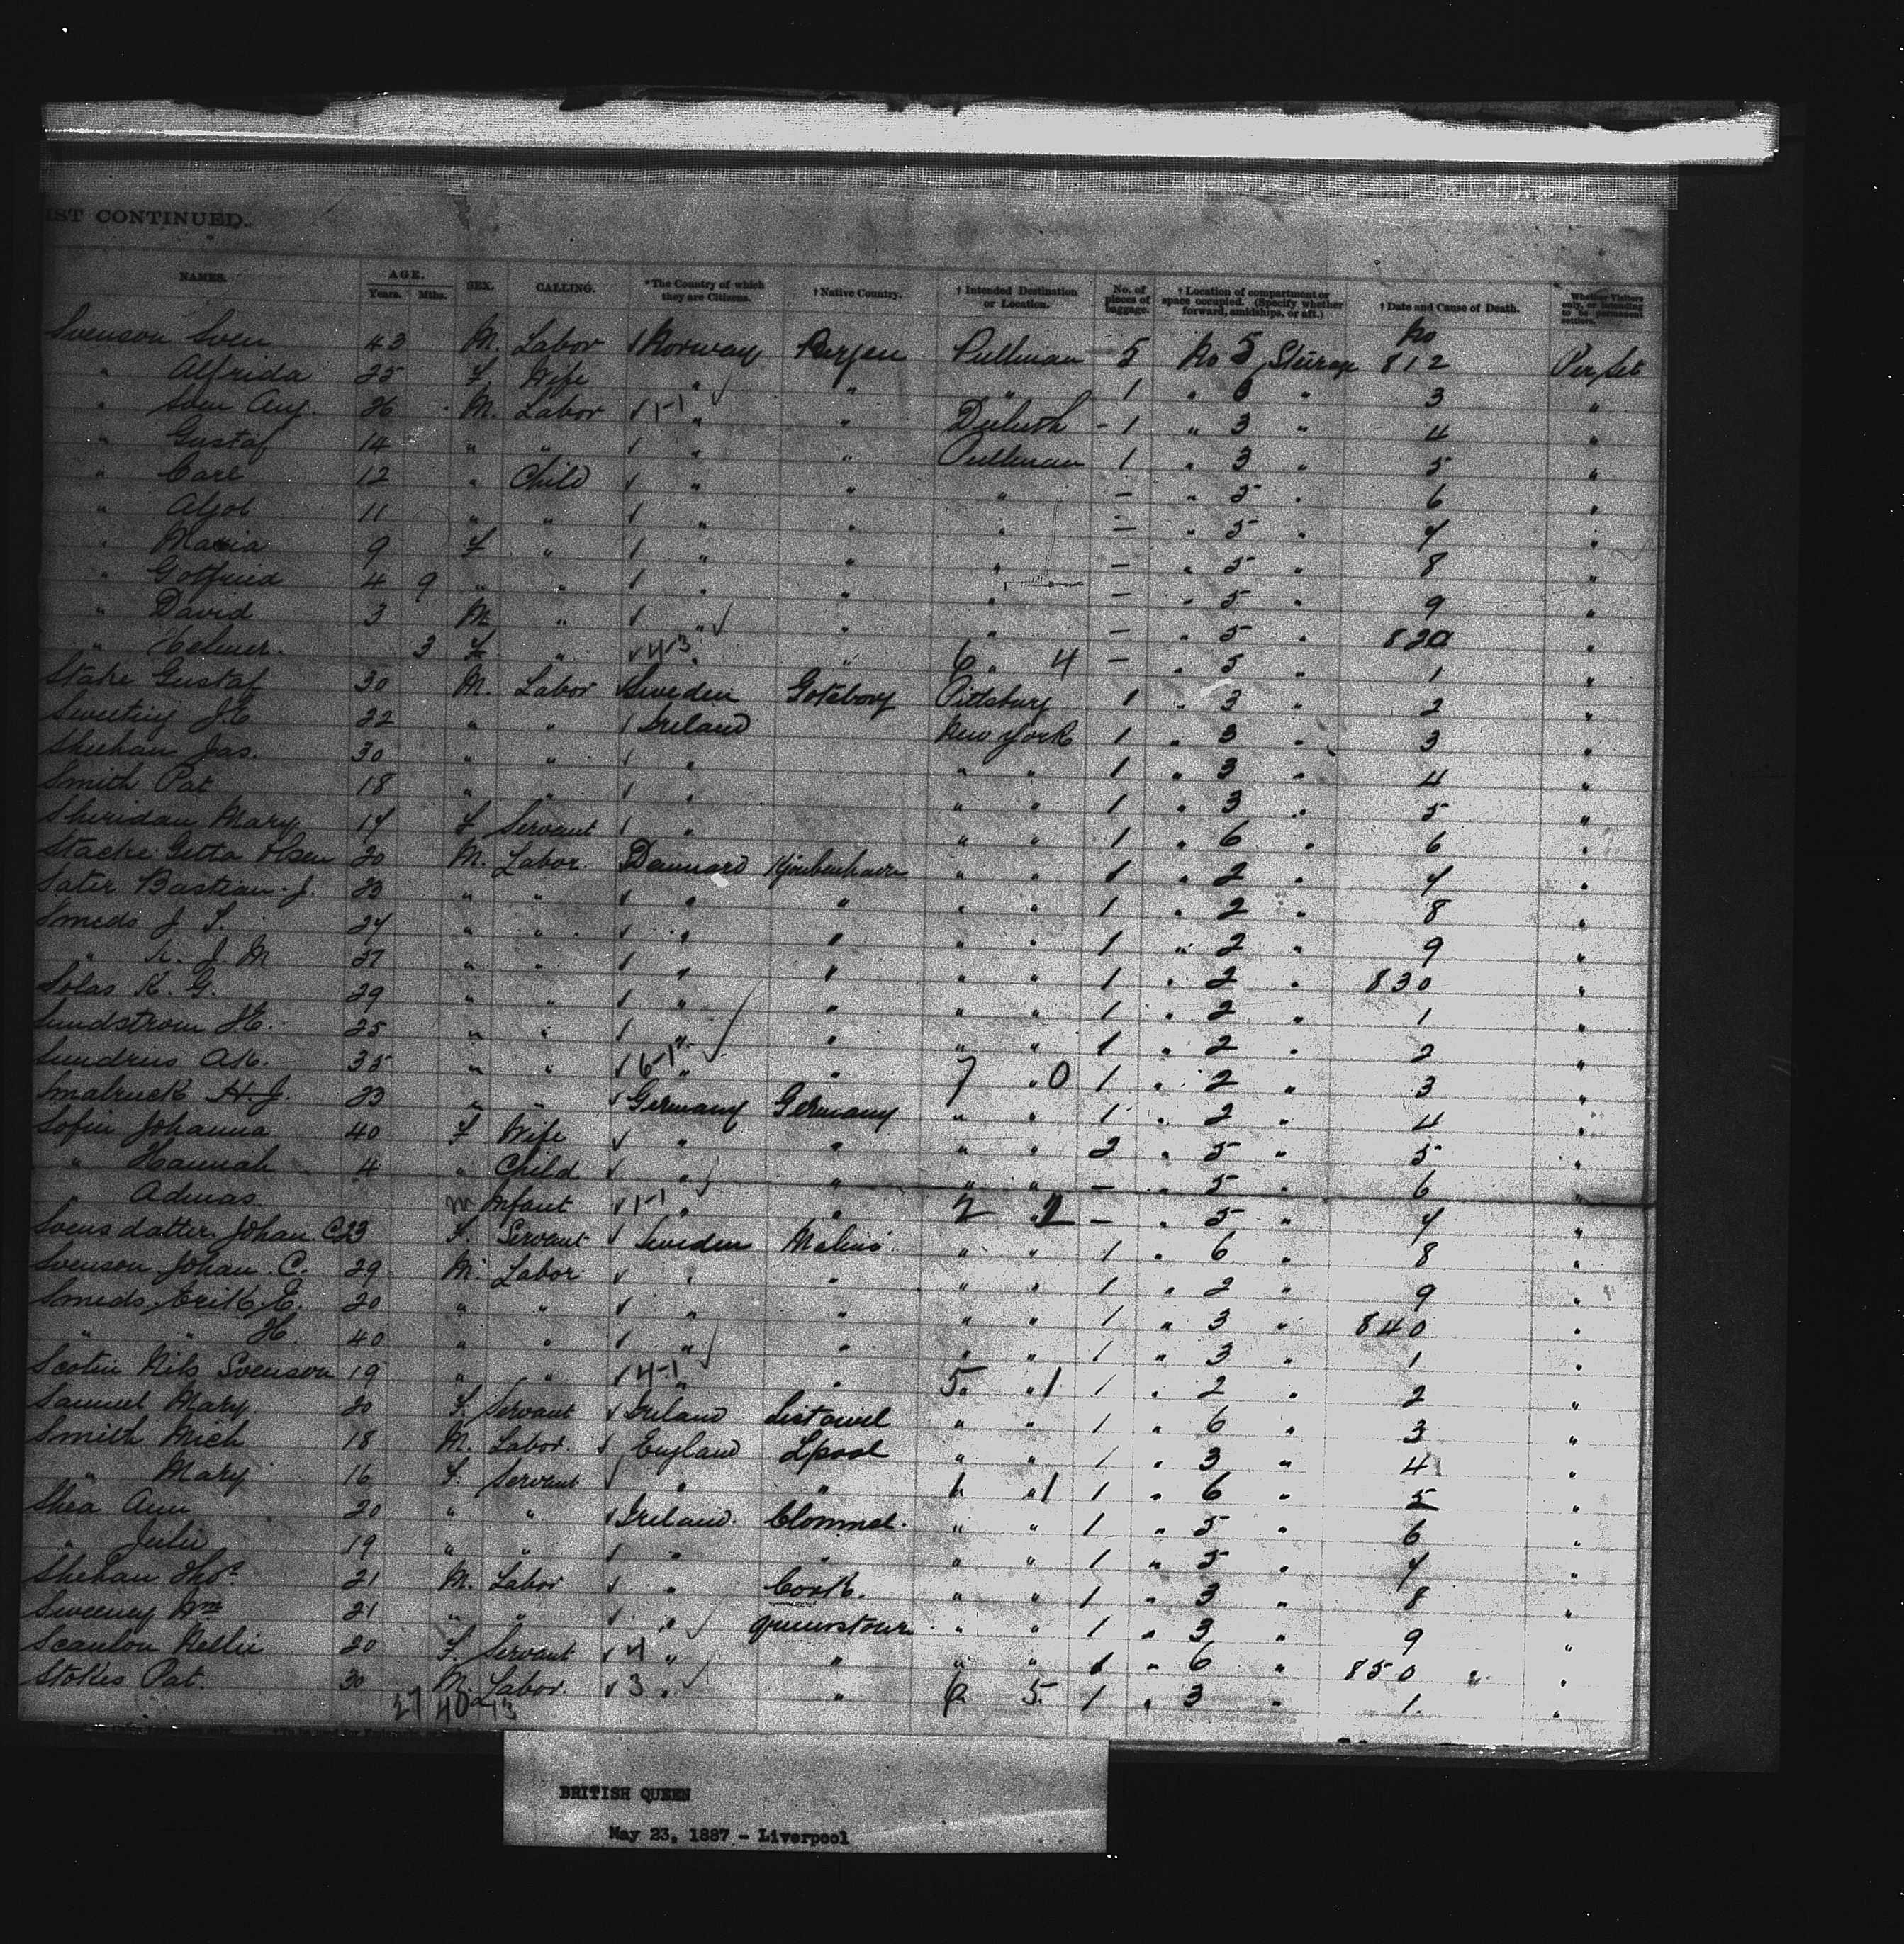 IST CONTINUED.
NAMES. AGE. Years. Mths. SEX. CALLING. *The Country of which they are Citizens. †Native Country. †Intended Destination or Location. No. of pieces of baggage. †Location of compartment or space occupied. (Specify whether forward, amidships, or aft.) †Date and Cause of Death. Whether Visitors only, or intending to be permanent settlers.
Svenson Sven 43 M. Labor Norway Bergen Pullman 5 No 5 No 812 Per Set
" Alfrida 25 F. Wife " " " 1 " 5 " 3 "
" Sven Aug. 26 M. Labor 1-1 " " Duluth - 1 " 3 " 4 "
" Gustaf 14 " " " " Pullman 1 " 3 " 5 "
" Carl 12 " Child " " " - " 5 " 6 "
" Algot 11 " " " " " - " 5 " 7 "
" Maria 9 F " " " " - " 5 " 8 "
" Gotfried 4 9 " " " " " - " 5 " 9 "
" David 3 M " " " " - " 5 " 820 "
" Helmer. 3 F " 4-3 " " 6 " 4 - " 5 " 1 "
Stake Gustaf 30 M. Labor Sweden Goteborg Pittsburg 1 " 3 " 2 "
Sweeting J.E. 22 " " Ireland New York 1 " 3 " 3 "
Sheehan Jas. 30 " " " " " 1 " 3 " 4 "
Smith Pat 18 " " " " " 1 " 3 " 5 "
Sheridan Mary 17 F Servant " " " 1 " 6 " 6 "
Olsen 20 M. Labor. Kjoubenhavn " " 1 " 2 " 7 "
Sater Bastian J. 23 " " " " " " 1 " 2 " 8 "
Smeds J. S. 24 " " " " " " 1 " 2 " 9 "
" K. J. M 37 " " " " " " 1 " 2 " 830 "
Solas K. G. 29 " " " " " " 1 " 2 " 1 "
Sundstrom H. 25 " " " " " " 1 " 2 " 2 "
35 " " 6-1 " " 7 " 0 1 " 2 " 3 "
H. J. 23 " " Germany Germany " " 1 " 2 " 4 "
Sofin Johanna 40 F Wife " " " " 2 " 5 " 5 "
" Hannah 4 " Child " " " " - " 5 " 6 "
Admas. m Infant 1-1 " " 2 " 2 - " 5 " 7 "
Svensdatter Johan C. 23 F. Servant Sweden Malmo " " 1 " 6 " 8 "
Svenson Johan C. 29 M. Labor " " " " 1 " 2 " 9 "
Smeds Erik E. 20 " " " " " " 1 " 3 " 840 "
" " H. 40 " " " " " " 1 " 3 " 1 "
Scotin Nils Svenson 19 " " 4-1 " " 5 " 1 1 " 2 " 2 "
Samuel Mary 20 F. Servant Ireland Listowel " " 1 " 6 " 3 "
Smith Mich 18 M. Labor. England Lpool " " 1 " 3 " 4 "
" Mary 16 F. Servant " " 1 " 1 1 " 6 " 5 "
Shea Ann 20 " " Ireland. Clonmel. " " 1 " 5 " 6 "
" Julie 19 " " " " " " 1 " 5 " 7 "
Shehan Thos. 21 M. Labor " Cork. " " 1 " 3 " 8 "
Sweeney Wm 21 " " " Queenstown " " 1 " 3 " 9 "
Scanlon Nellie 20 F. Servant 4 " " " " 1 " 6 " 850 " "
Stokes Pat. 30 M. Labor. 3 " " 6 5 1 " 3 " 1. "
27 40 13
BRITISH QUEEN
May 23, 1887 - Liverpool